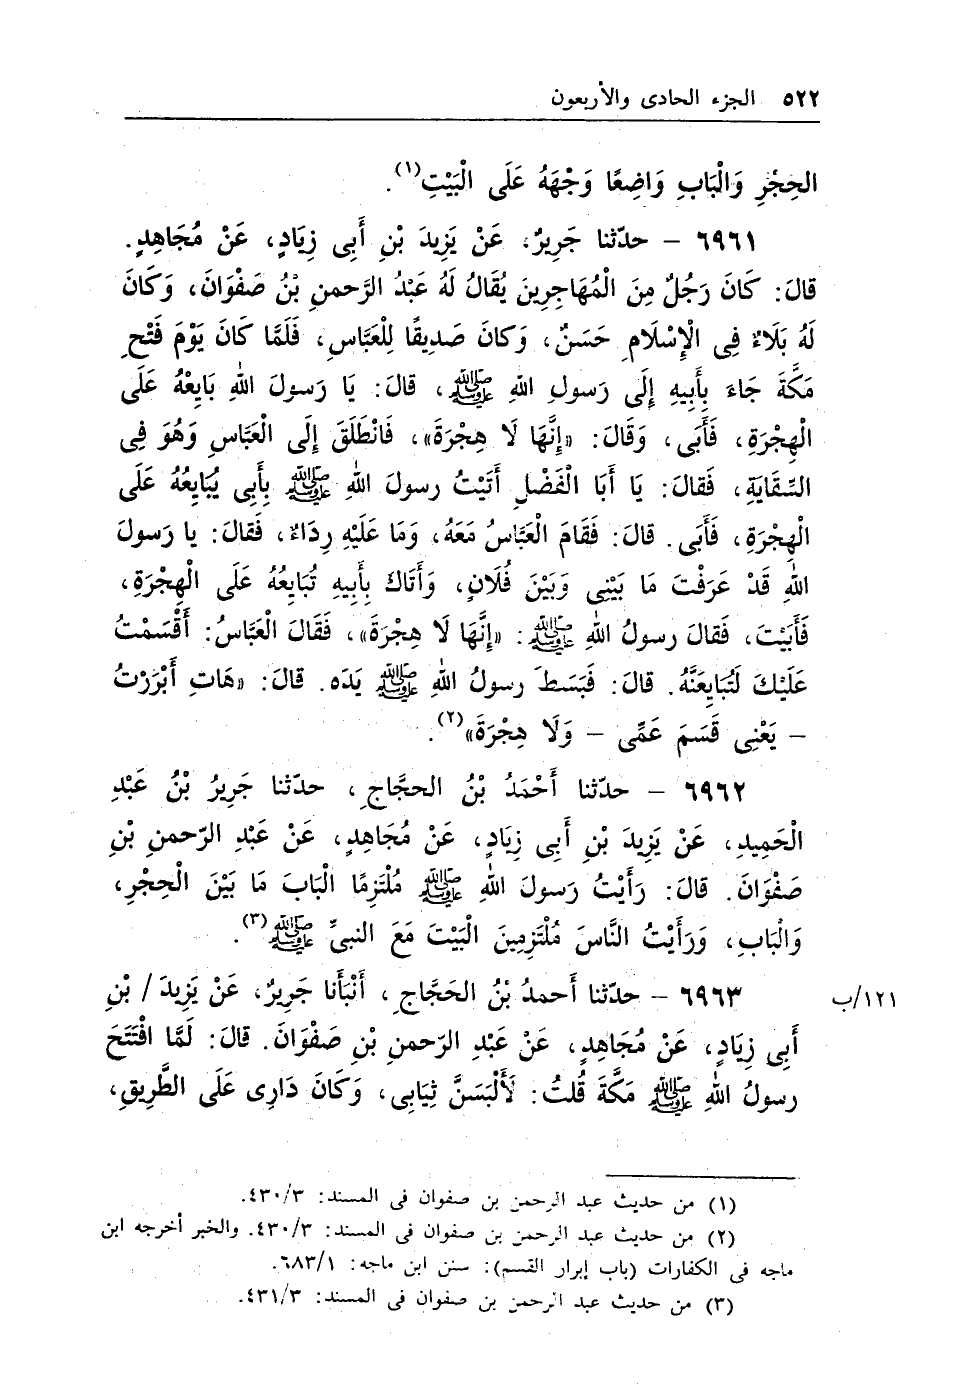 ٥٢٢ الجزء الحادى والأربعون
الحِجْرِ وَالْبَابِ وَاضِعًا وَجْهَهُ عَلَى الْبَيْتِ(١).
٦٩٦١ – حدّثنا جَرِيرٌ، عَنْ يَزِيدَ بْنِ أَبِى زِيَادٍ، عَنْ مُجَاهِدٍ.
قالَ: كَانَ رَجُلٌ مِنَ الْمُهَاجِرِينَ يُقَالُ لَهُ عَبْدُ الرَّحمنِ بْنُ صَفْوَانَ، وَكَانَ
لَهُ بَلَاءٌ فِى الْإِسْلَامِ حَسَنٌ، وَكانَ صَدِيقًا لِلْعَبَّاسِ، فَلَمَّا كَانَ يَوْمَ فَتْحِ
مَكَّةَ جَاءَ بِأَبِيهِ إِلَى رَسولِ اللهِ ﷺ، قالَ: يَا رَسولَ اللهِ بَايِعْهُ عَلَى
الْهِجْرَةِ، فَأَبَى، وَقَالَ: «إِنَّهَا لَا هِجْرَةَ»، فَانْطَلَقَ إِلَى العَبَّاسِ وَهُوَ فِى
السِّقَايَةِ، فَقالَ: يَا أَبَا الْفَضْلِ أَتَيْتُ رسولَ اللهِ ﷺ بِأَبِى يُبَايِعُهُ عَلَى
الْهِجْرَةِ، فَأَبَى. قالَ: فَقَامَ الْعَبَّاسُ مَعَهُ، وَمَا عَلَيْهِ رِدَاءٌ، فَقالَ: يا رَسولَ
اللهِ قَدْ عَرَفْتَ مَا بَيْنِى وَبَيْنَ فُلَانٍ، وَأَتَاكَ بِأَبِيهِ تُبَايِعُهُ عَلَى الْهِجْرَةِ،
فَأَبَيْتَ، فَقالَ رسولُ اللهِ ﷺ: «إِنَّهَا لَا هِجْرَةَ»، فَقَالَ الْعَبَّاسُ: أَقْسَمْتُ
عَلَيْكَ لَتُبَايِعَنَّهُ. قالَ: فَبَسَطَ رسولُ اللهِ ﷺ يَدَه. قالَ: «هَاتِ أَبْرَرْتُ
– يَعْنِى قَسَمَ عَمِّى – وَلَا هِجْرَةَ»(٢).
٦٩٦٢ – حدّثنا أَحْمَدُ بْنُ الحجَّاجِ، حدّثنا جَرِيرُ بْنُ عَبْدِ
الْحَمِيدِ، عَنْ يَزِيدَ بْنِ أَبِى زِيَادٍ، عَنْ مُجَاهِدٍ، عَنْ عَبْدِ الرّحمنِ بْنِ
صَفْوَانَ. قالَ: رَأَيْتُ رَسولَ اللهِ ﷺ مُلْتَزِمًا الْبَابَ مَا بَيْنَ الْحِجْرِ،
وَالْبَابِ، وَرَأَيْتُ النَّاسَ مُلْتَزِمِينَ الْبَيْتَ مَعَ النبىِّ ﷺ(٣).
٦٩٦٣ – حدّثنا أَحمدُ بْنُ الحَجَّاجِ، أَنْبَأَنا جَرِيرٌ، عَنْ يَزِيدَ / بْنِ ١٢١/ب
أَبِى زِيَادٍ، عَنْ مُجَاهِدٍ، عَنْ عَبْدِ الرّحمنِ بْنِ صَفْوَانَ. قالَ: لَمَّا افْتَتَحَ
رسولُ اللهِ ﷺ مَكَّةَ قُلتُ: لَأَلْبَسَنَّ ثِيَابِى، وَكَانَ دَارِى عَلَى الطَّرِيقِ،
(١) من حديث عبد الرحمن بن صفوان فى المسند: ٤٣٠/٣.
(٢) من حديث عبد الرحمن بن صفوان فى المسند: ٤٣٠/٣. والخبر أخرجه ابن
ماجه فى الكفارات (باب إبرار القسم): سنن ابن ماجه: ٦٨٣/١.
(٣) من حديث عبد الرحمن بن صفوان فى المسند: ٤٣١/٣.